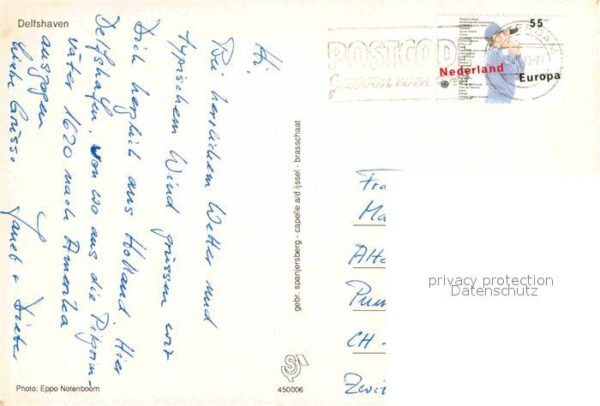 Delfshaven
Hi.
Bei herrlichem Wetter und
typischem Wind grüssen wir
Dich herzlich aus Holland. Hier
Delfshafen, von wo aus die Pilgrim-
väter 1620 nach Amerika
auszogen
Liebe Grüsse
+ Dieter
Photo: Eppo Notenboom
gebr. spanjersberg - capelle a/d ijssel - brasschaat
450006
POSTCODE
gewoon even
55
Nederland
Europa
Fra
Ma
CH -
privacy protection
Datenschutz